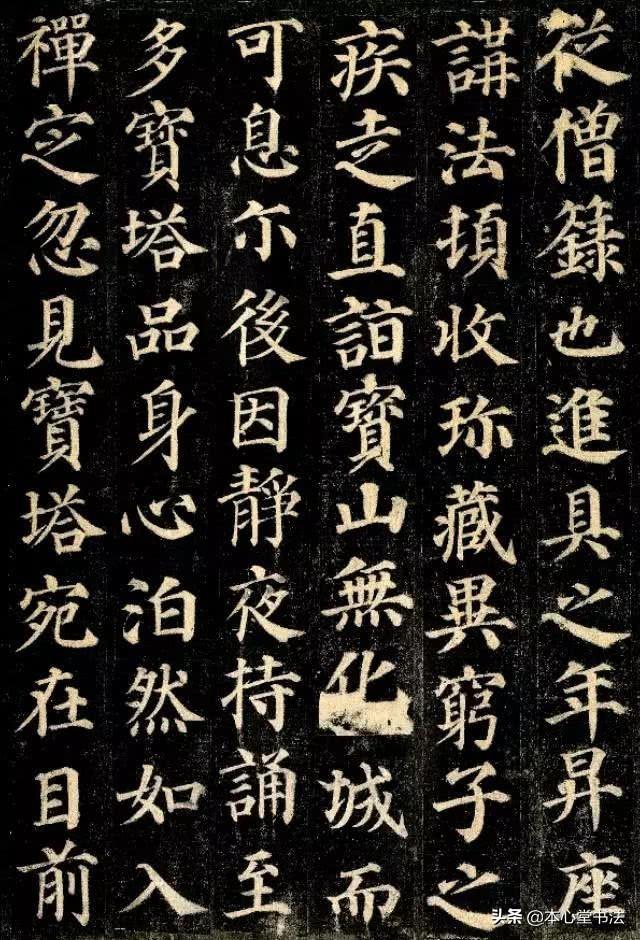 從僧籙也進具之年昇座
講法頓收珎藏異窮子之
疾走直詣寳山無化城而
可息尒後因靜夜持誦至
多寳塔品身心泊然如入
禪定忽見寳塔宛在目前
头条 @本心堂书法